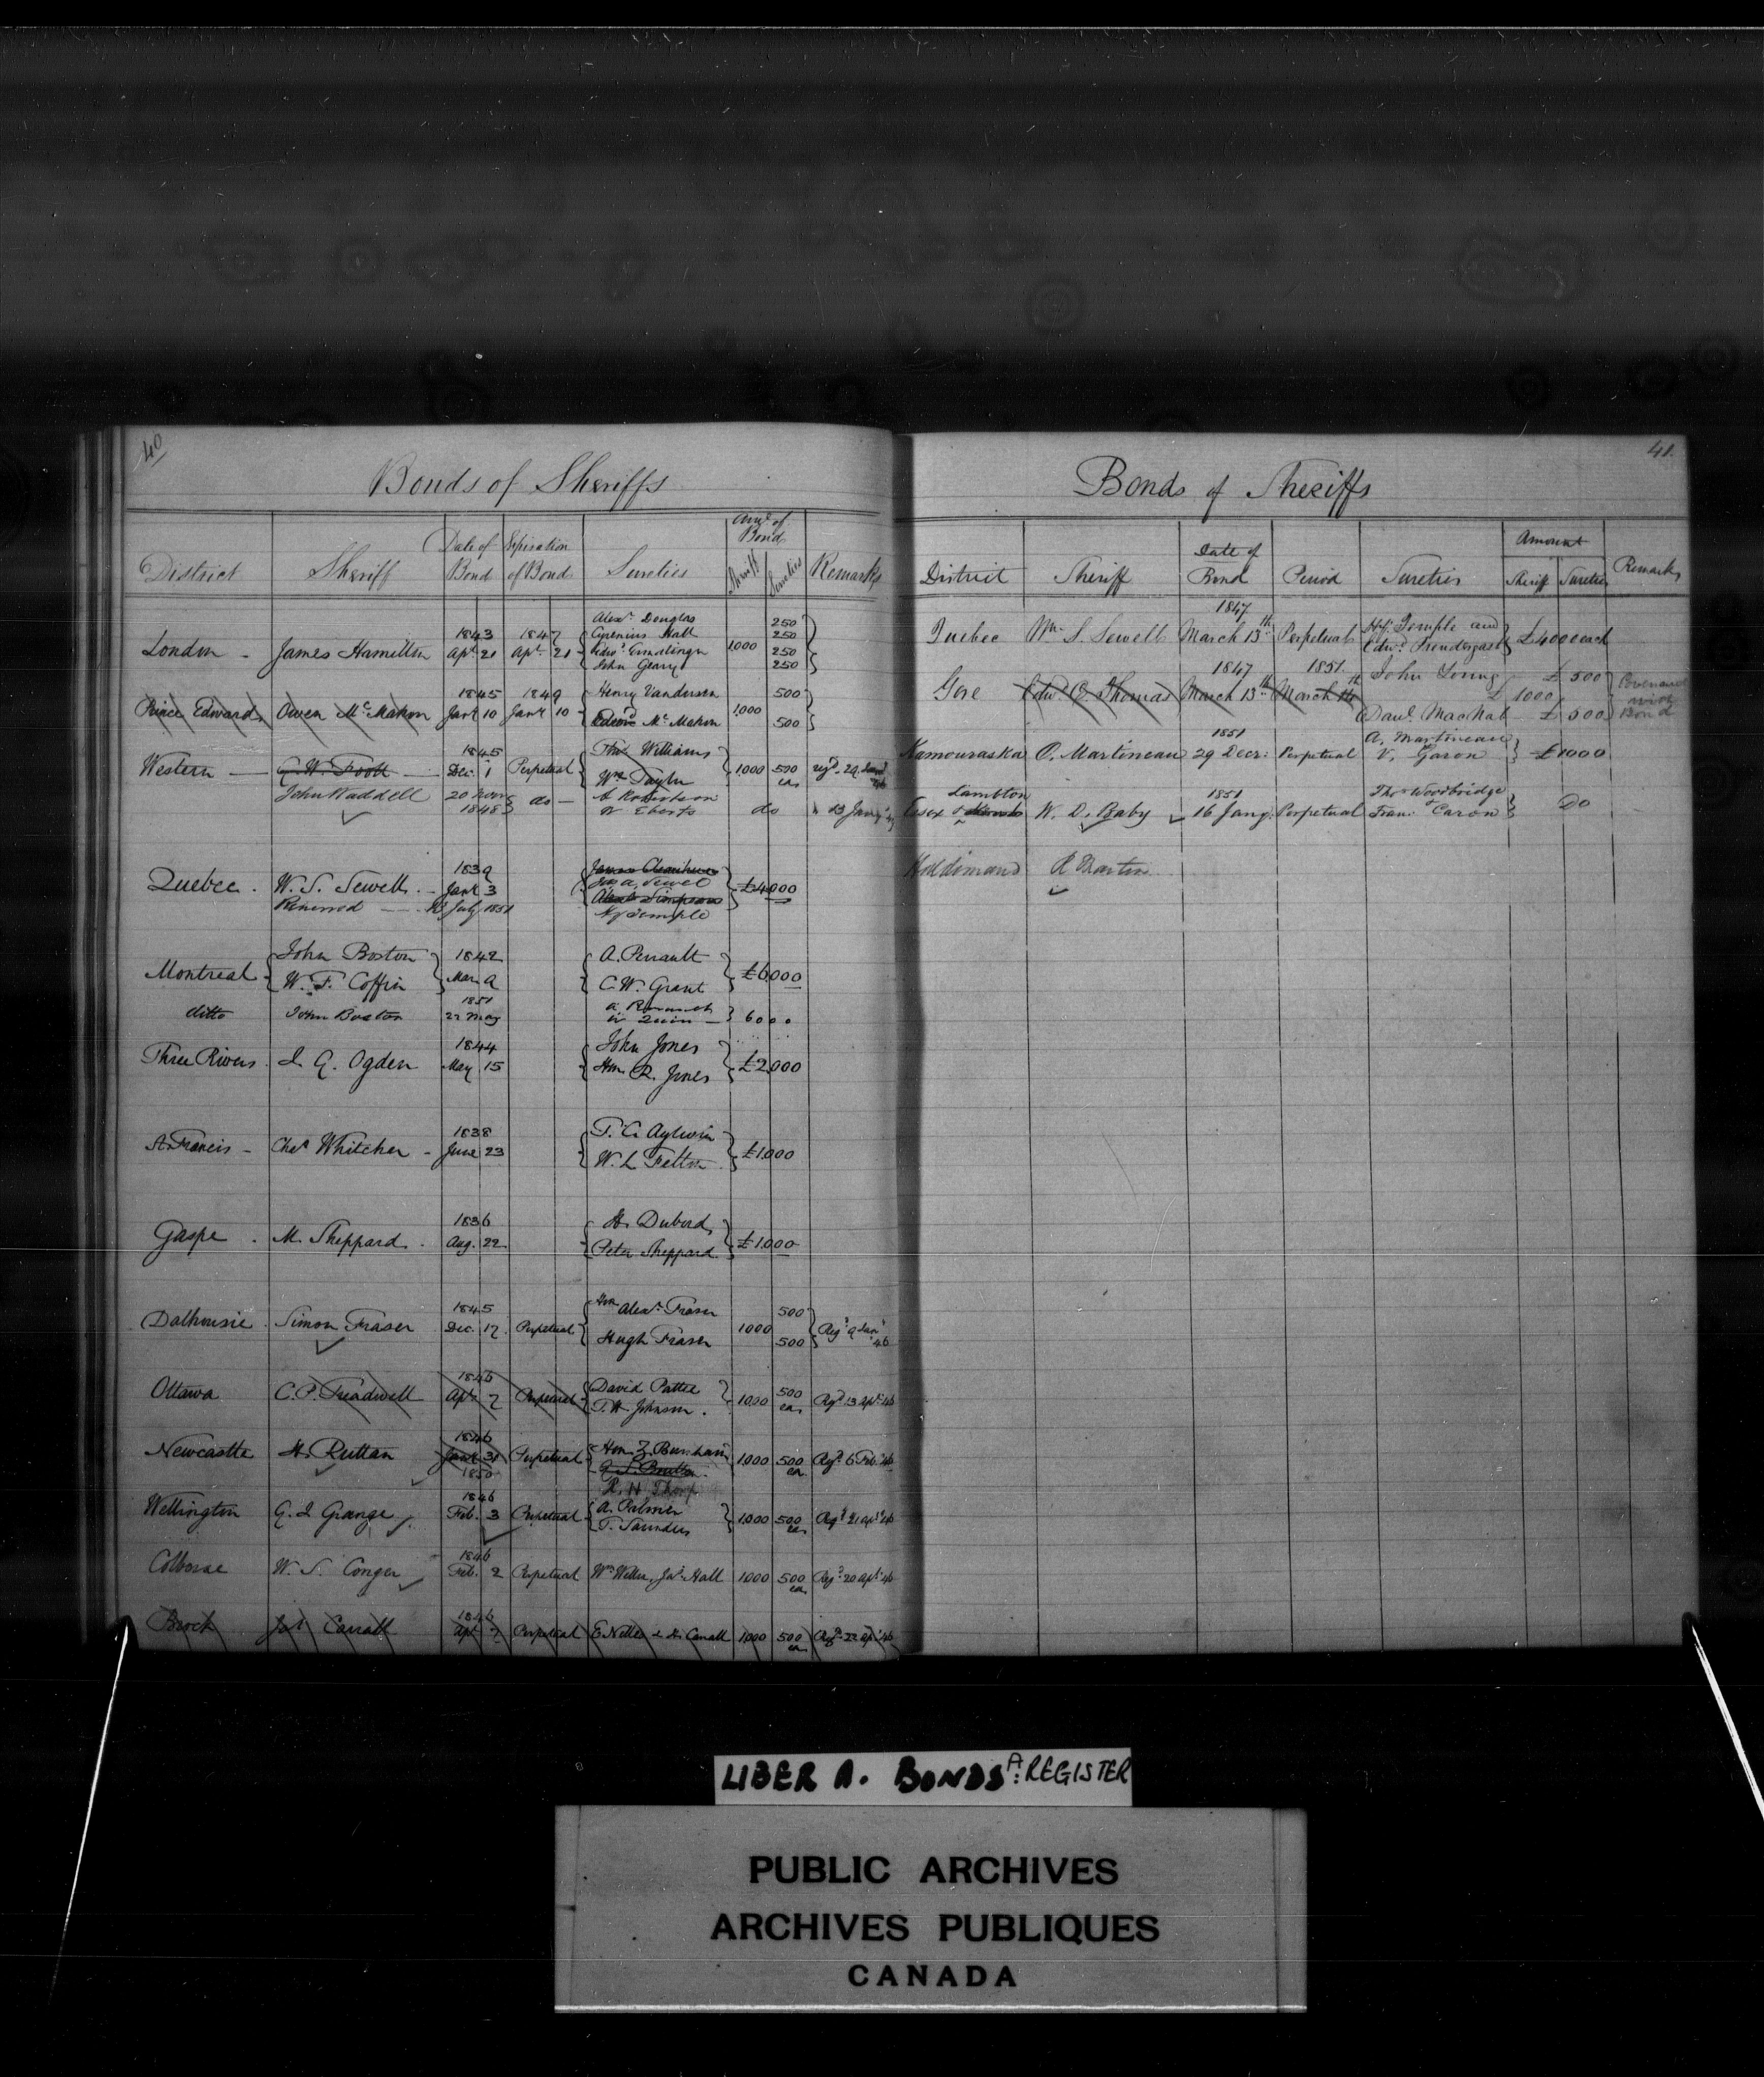 40
Bonds of Sheriffs
District Sheriff Date of Bond Expiration of Bond Sureties Amt. of Bond Sheriff Sureties Remarks
London - James Hamilton 1843 Apl. 21 1847 Apl. 21 1000
Alexr. Douglas 250
Cyrenius Hall 250
250
John Geary 250
Prince Edward Owen McMahon 1845 Jany 10 1849 Jany 10 1000
Henry Vandusen 500
McMahon 500
Western G. W. Foott 1845 Dec. 1 Perpetual 1000 500 ea.
Thos. Williams
Wm. Taylor
John Waddell 20 Novr 1848 do - do
Robertson
W Eberts
Quebec. W. S. Sewell. - 1839 Jany 3 £4000
Renewed July 1851
Sewel
Hy Temple
Montreal John Boston
W. F. Coffin 1842 Mar. 9 £6000
A. Perrault
C. W. Grant
ditto John Boston 1851 22 May 6000
Three Rivers. I. G. Ogden 1844 May 15 £2000
John Jones
Hon. R. Jones
St. Francis - Chas Whitcher - 1838 June 23 £1000
T. C. Aylwin
W. L. Felton
Gaspe. M. Sheppard. 1836 Aug. 22 £1000
H. Dubord
Peter Sheppard
Dalhousie. Simon Fraser 1845 Dec. 17. Perpetual 1000 Regd 9 Jany 46
Hon Alexr. Fraser 500
Hugh Fraser 500
Ottawa C. P. Treadwell 1846 Apl. 7 Perpetual 1000 500 ea. Regd 13 Apl. 46
David Pattee
T. H. Johnson.
Newcastle H. Ruttan 1846 Jany 31 1850 Perpetual 1000 500 ea. Regd. 6 Feb. 46
Hon. Z. Burnham
R. H. Throop
Wellington G. I. Grange 1846 Feb. 3 Perpetual 1000 500 ea. Regd 21 Apl 46
A. Palmer
T. Saunders
Colborne W. S. Conger 1846 Feb. 2 Perpetual Wm Weller, Jas. Hall 1000 500 ea. Regd. 20 Apl. 46
Brock Jas Carroll 1846 Apl. 7 Perpetual E. Nelles & D. Carroll 1000 500 ea. Regd. 22 Apl. 46
41.
Bonds of Sheriffs
District Sheriff Date of Bond Period Sureties Amount Sheriff Sureties Remarks
Quebec Wm. S. Sewell 1847 March 13th Perpetual £4000 each
Hy. Temple and
Edwd. Prendergast
Gore Edwd. C. Thomas 1847 March 13th 1851. March £ 1000
John Young £ 500
Danl. MacNab £ 500
Covenant with Bond
Kamouraska O. Martineau 1851 29 Decr: Perpetual £1000
A. Martineau
V. Garon
Essex & Lambton W. D. Baby 1851 16 Jany: Perpetual Do
Thos Woodbridge
Frans. Caron
Haldimand R Martin
LIBER A. BONDS A: REGISTER
PUBLIC ARCHIVES
ARCHIVES PUBLIQUES
CANADA